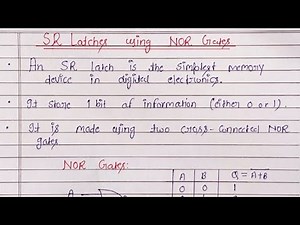 SR Latches using NOR Gates
• An SR latch is the simplest memory
device in digital electronics.
• It store 1 bit of information (either 0 or 1).
• It is made using two cross-connected NOR
gates
NOR Gates:
A B Q = A+B
A 0 0 1
0 1 0